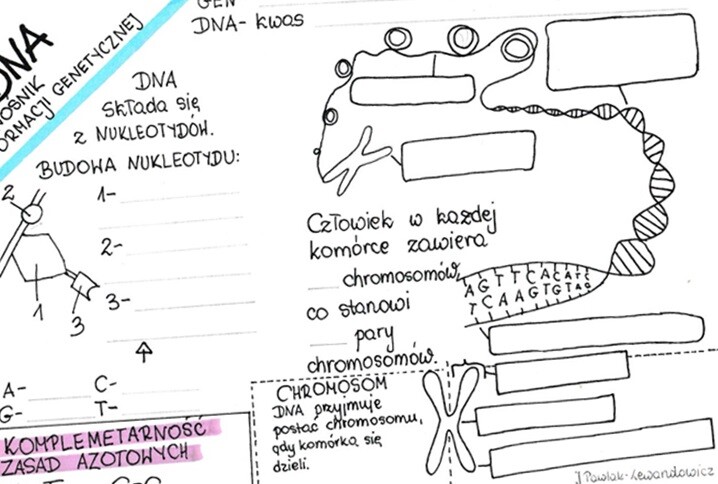 GEN
DNA- KWAS
DNA
NOŚNIK
INFORMACJI GENETYCZNEJ
DNA
SKŁADA SIĘ
Z NUKLEOTYDÓW.
BUDOWA NUKLEOTYDU:
2
1-
2-
3-
1
3
A-
C-
G-
T-
KOMPLEMETARNOŚĆ
ZASAD AZOTOWYCH
Człowiek w każdej
komórce zawiera
chromosomów,
co stanowi
pary
chromosomów.
AGTTCACATC
TCAAGTGTAG
CHROMOSOM
DNA przyjmuje
postać chromosomu,
gdy komórka się
dzieli.
J Pawlak-Lewandowicz